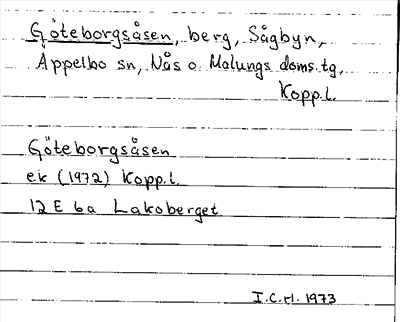 Göteborgsåsen, berg, Sågbyn,
Äppelbo sn, Nås o. Malungs doms.tg,
Kopp.l.
Göteborgsåsen
ek (1972) Kopp.l.
12 E 6a Lakoberget
I.C.H. 1973